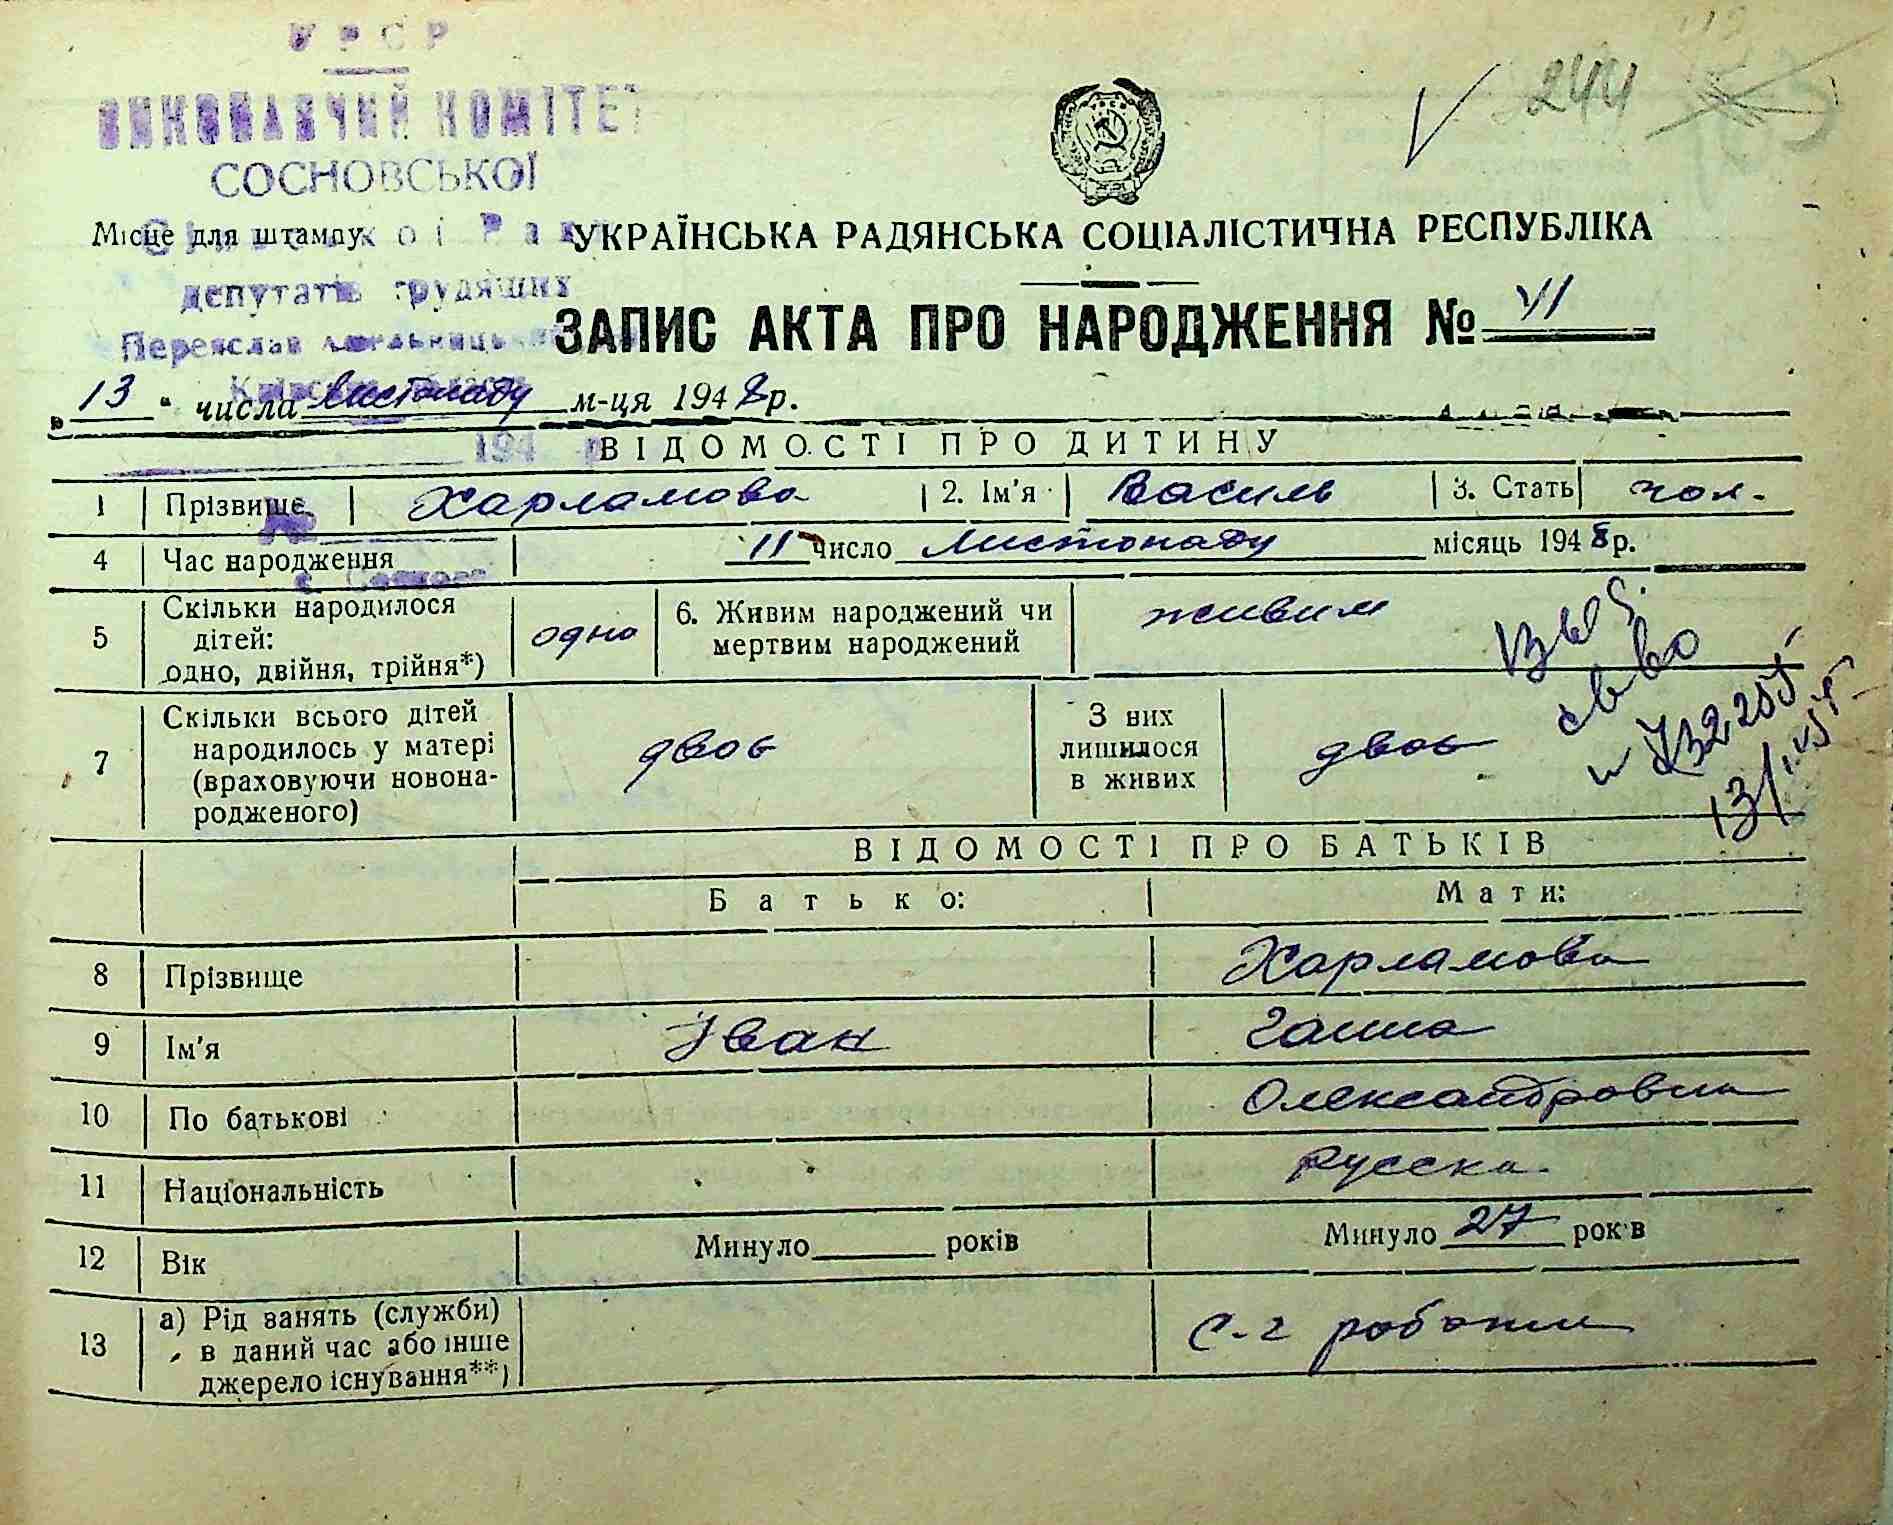 УРСР
ВИКОНАВЧИЙ КОМІТЕТ
СОСНОВСЬКОЇ
Місце для штампу
УКРАЇНСЬКА РАДЯНСЬКА СОЦІАЛІСТИЧНА РЕСПУБЛІКА
депутатів трудящих
ЗАПИС АКТА ПРО НАРОДЖЕННЯ №
„13“ числа Листопаду м-ця 1948р.
194 р
ВІДОМОСТІ ПРО ДИТИНУ
1 Прізвище Харламова 2. Ім'я Василь 3. Стать чол.
4 Час народження 11 число Листопаду місяць 1948р.
5 Скільки народилося дітей: одно, двійня, трійня*) одно 6. Живим народжений чи мертвим народжений живим
7 Скільки всього дітей народилось у матері (враховуючи новонародженого) двоє З них лишилося в живих двоє
ВІДОМОСТІ ПРО БАТЬКІВ
Батько: Мати:
8 Прізвище Харламова
9 Ім'я Іван Ганна
10 По батькові Олександровна
11 Національність русска
12 Вік Минуло років Минуло 27 років
13 а) Рід занять (служби) в даний час або інше джерело існування**) С-г
244